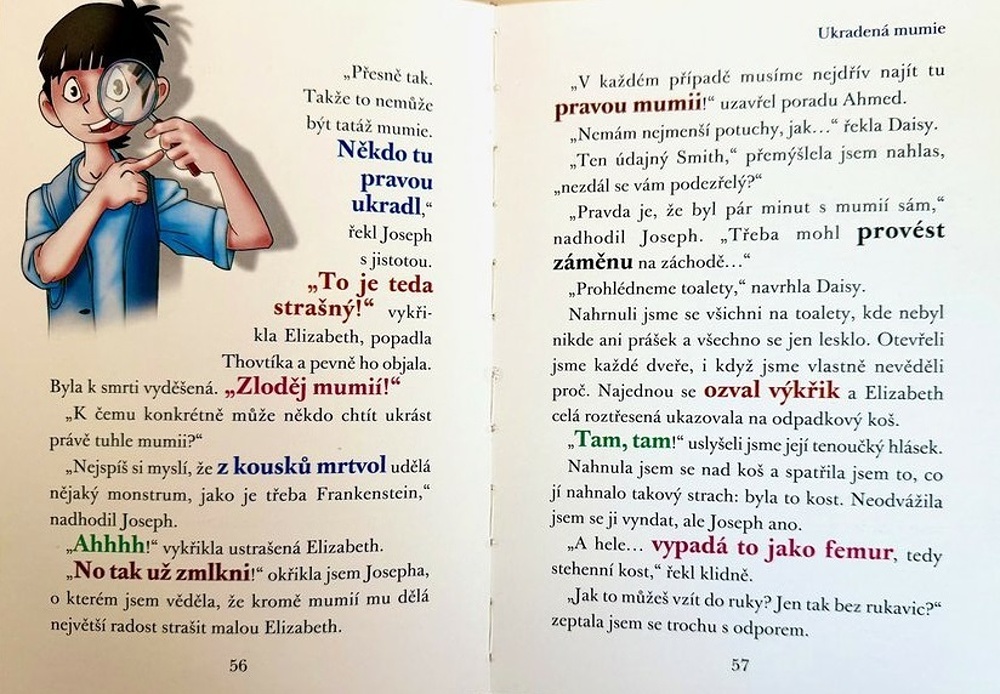 „Přesně tak.
Takže to nemůže
být tatáž mumie.
Někdo tu
pravou
ukradl,“
řekl Joseph
s jistotou.
„To je teda
strašný!“ vykři-
kla Elizabeth, popadla
Thovtíka a pevně ho objala.
Byla k smrti vyděšená. „Zloděj mumií!“
„K čemu konkrétně může někdo chtít ukrást
právě tuhle mumii?“
„Nejspíš si myslí, že z kousků mrtvol udělá
nějaký monstrum, jako je třeba Frankenstein,“
nadhodil Joseph.
„Ahhhh!“ vykřikla ustrašená Elizabeth.
„No tak už zmlkni!“ okřikla jsem Josepha,
o kterém jsem věděla, že kromě mumií mu dělá
největší radost strašit malou Elizabeth.
56
Ukradená mumie
„V každém případě musíme nejdřív najít tu
pravou mumii!“ uzavřel poradu Ahmed.
„Nemám nejmenší potuchy, jak…“ řekla Daisy.
„Ten údajný Smith,“ přemýšlela jsem nahlas,
„nezdál se vám podezřelý?“
„Pravda je, že byl pár minut s mumií sám,“
nadhodil Joseph. „Třeba mohl provést
záměnu na záchodě…“
„Prohlédneme toalety,“ navrhla Daisy.
Nahrnuli jsme se všichni na toalety, kde nebyl
nikde ani prášek a všechno se jen lesklo. Otevřeli
jsme každé dveře, i když jsme vlastně nevěděli
proč. Najednou se ozval výkřik a Elizabeth
celá roztřesená ukazovala na odpadkový koš.
„Tam, tam!“ uslyšeli jsme její tenoučký hlásek.
Nahnula jsem se nad koš a spatřila jsem to, co
jí nahnalo takový strach: byla to kost. Neodvážila
jsem se ji vyndat, ale Joseph ano.
„A hele… vypadá to jako femur, tedy
stehenní kost,“ řekl klidně.
„Jak to můžeš vzít do ruky? Jen tak bez rukavic?“
zeptala jsem se trochu s odporem.
57